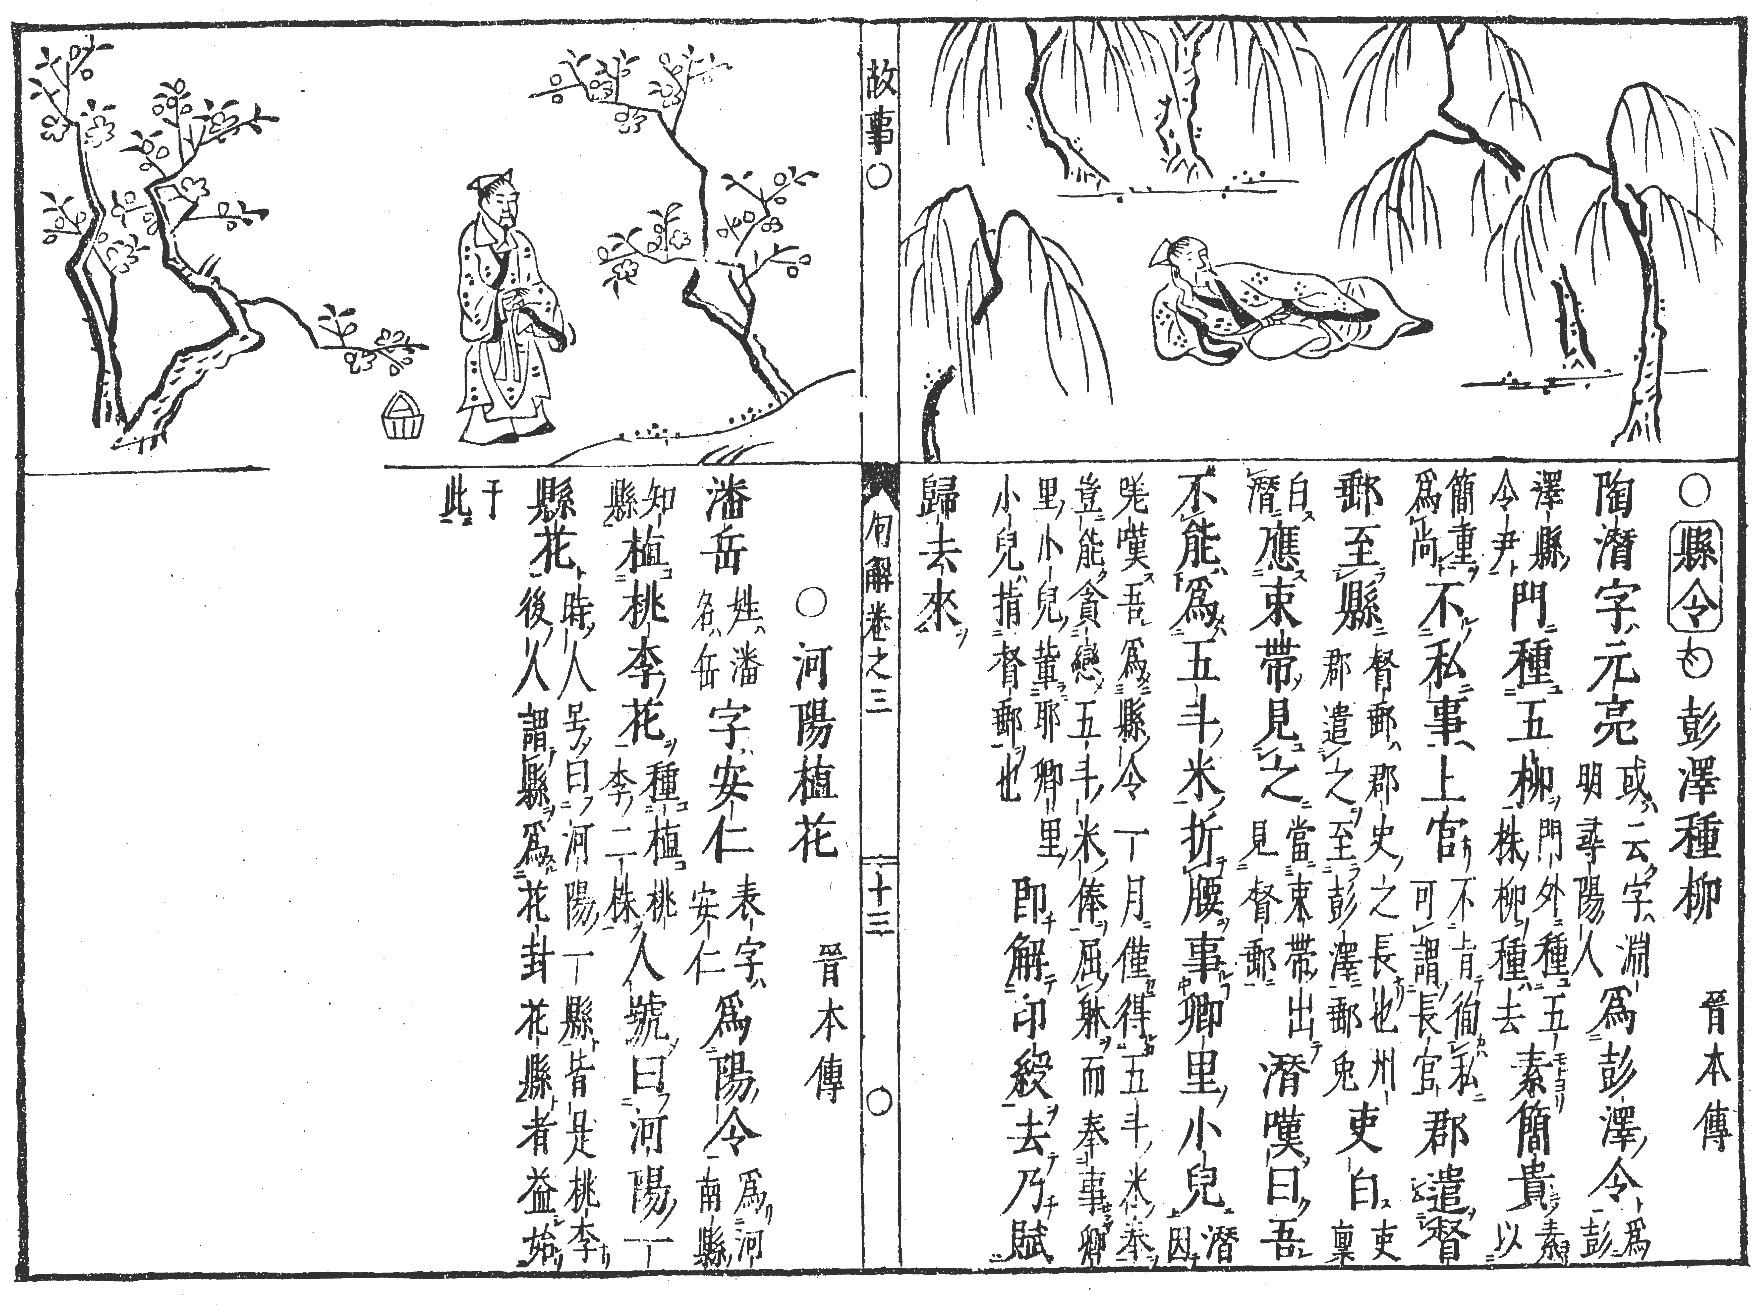 ○縣令○彭澤種柳 晉本傳
陶潛字元亮或云字淵明尋陽人爲彭澤令爲彭
澤縣令尹門種五柳門外種五株柳種去素簡貴素以
簡重爲尚不私事上官不肯徇私可謂長官郡遣督
郵至縣督郵郡吏之長也州郡遣之至彭澤郵吏白吏稟
白潛應束帶見之當束帶出見督郵潛嘆曰吾
不能爲五斗米折腰事鄉里小兒潛因
嗟嘆吾爲縣令一月僅得五斗米奉豈能貪戀五斗米俸屈躰而奉事鄉
里小兒輩耶鄉里小兒指督郵也即解印綬去乃賦
歸去來
故事○句解卷之三 十三 ○
○河陽植花 晉本傳
潘岳姓潘名岳字安仁表字安仁爲陽令爲河南縣
知縣植桃李花種植桃李二株人號曰河陽一
縣花時人号曰河陽一縣皆是桃李後人謂縣爲花封花縣者益始
于此